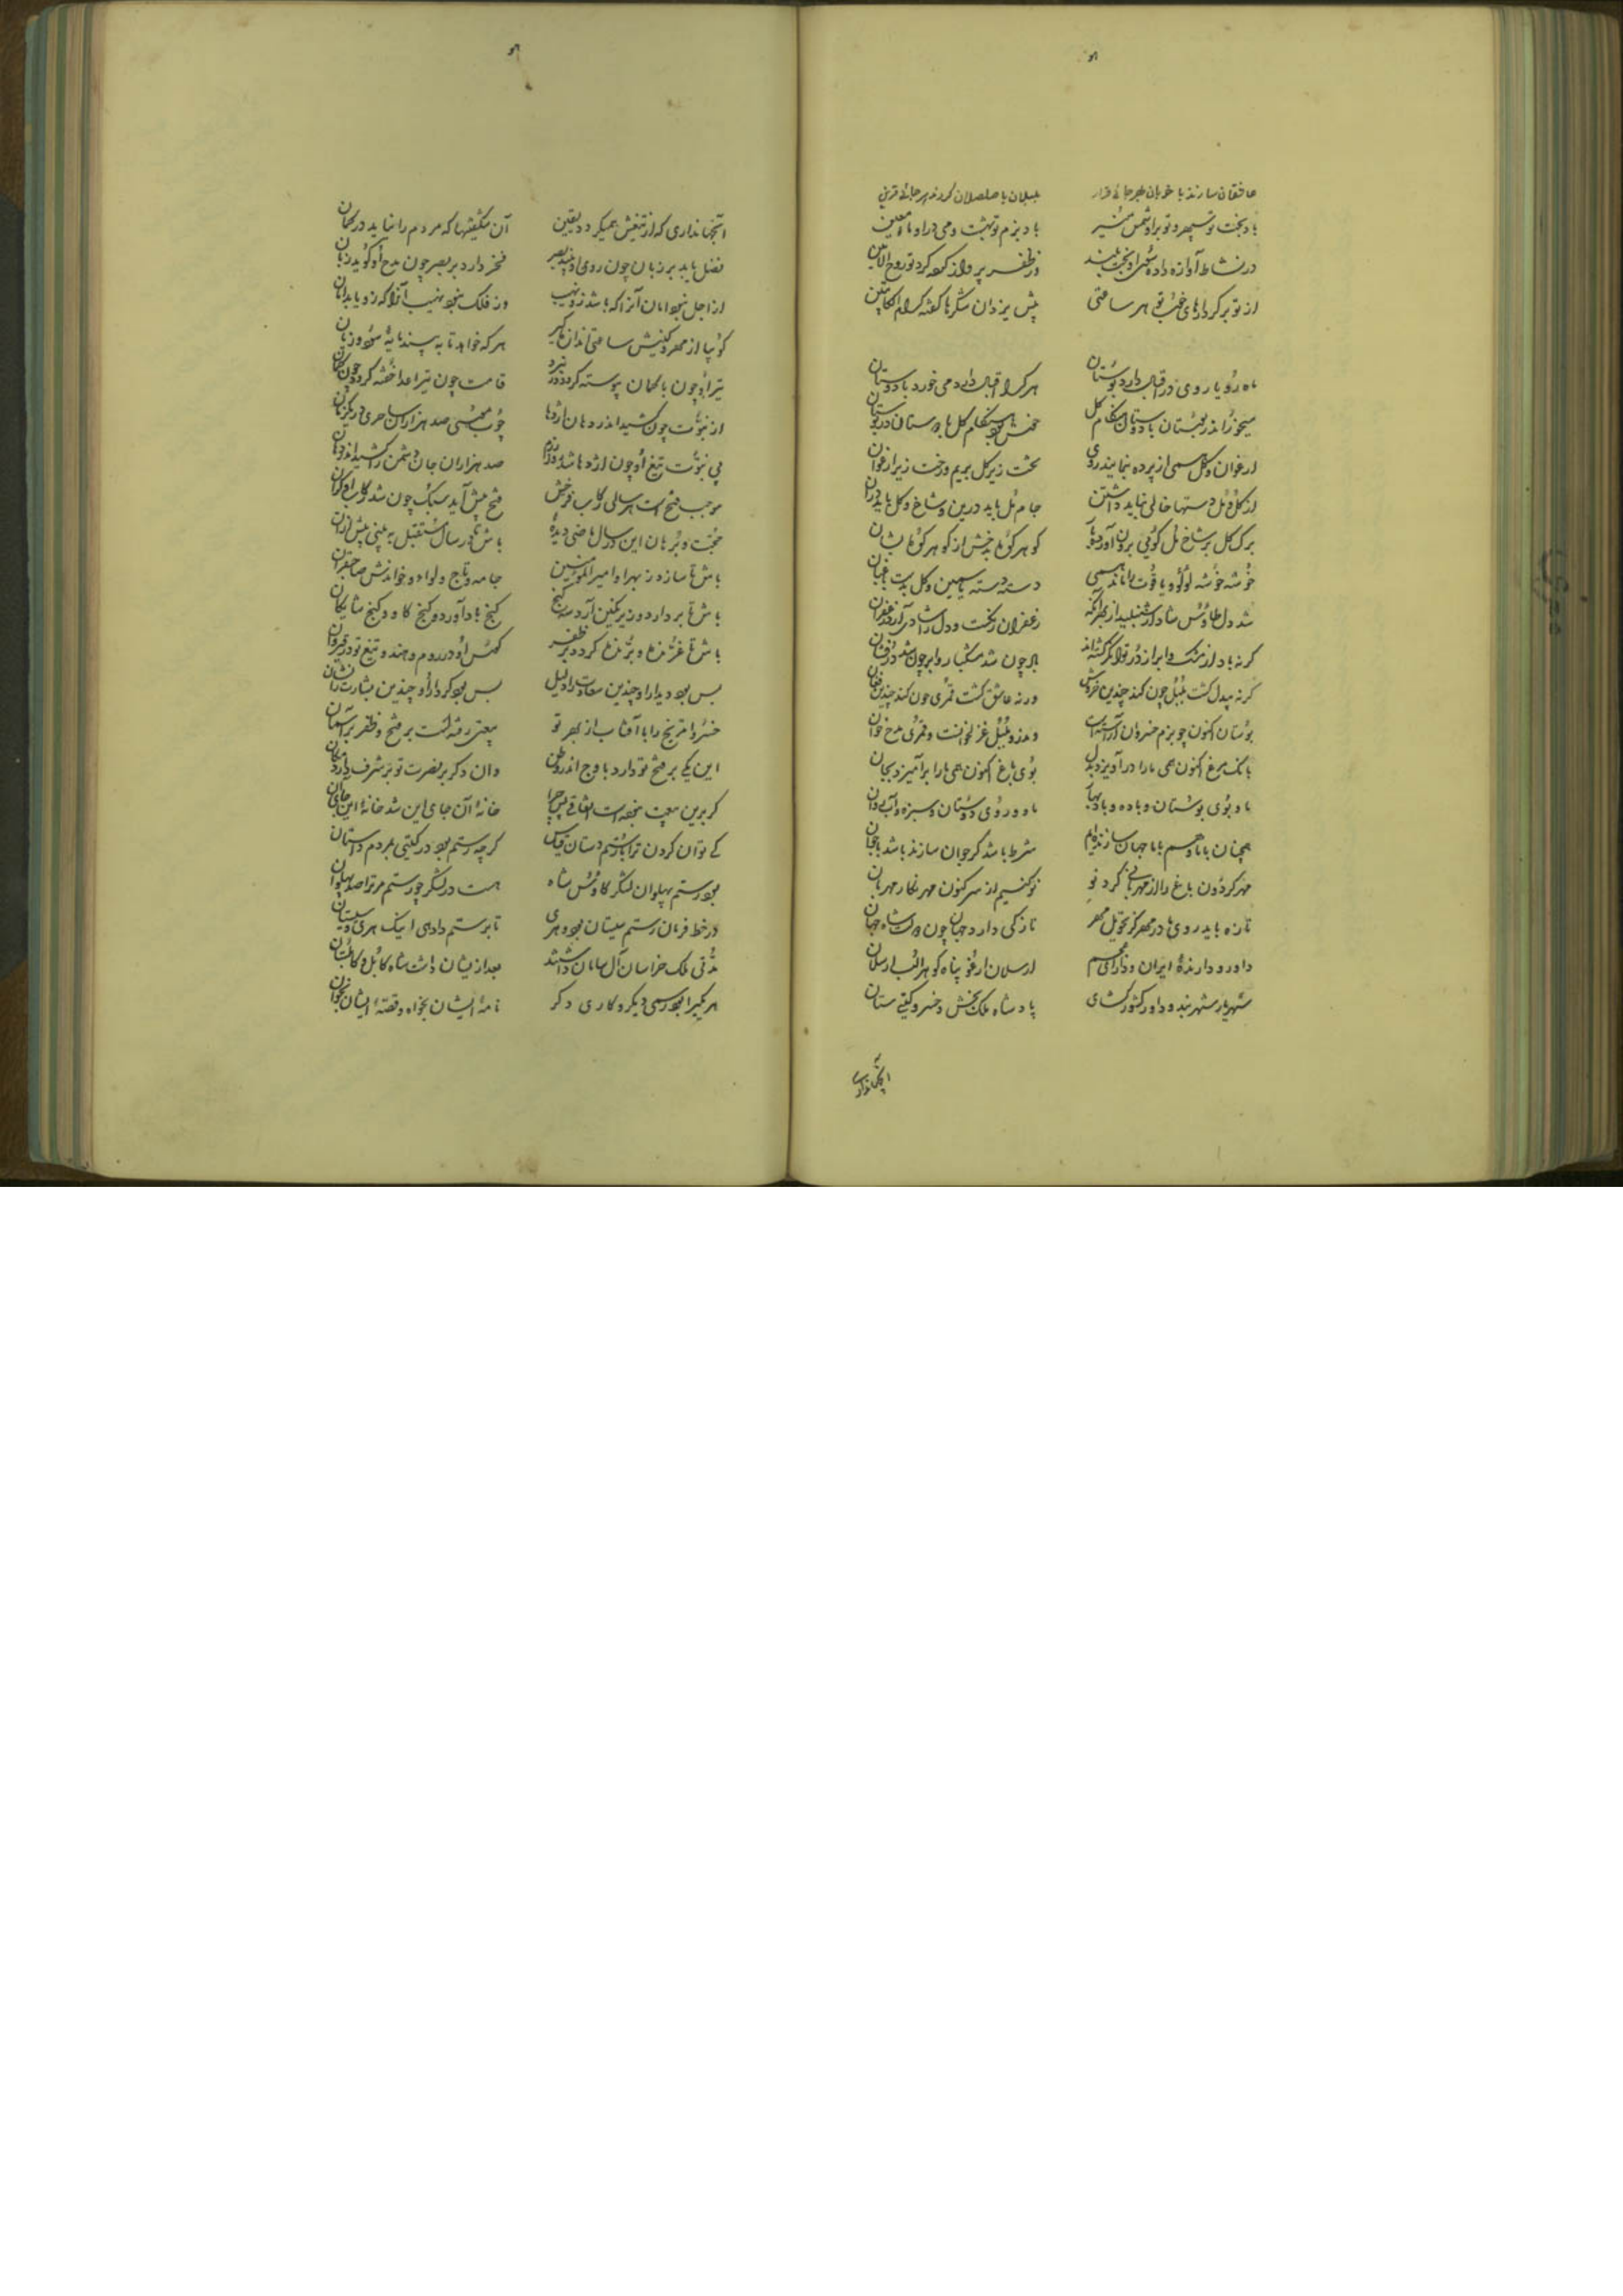 عاشقان سازند با خوبان بهر جائی قرار بلبلان با صلصلان کردند هر جائی قرین
باد بختت نو سپهر و تو بر او شمس منیر باد بزم تو بهشت و می در او ماء معین
در نشاط آوازه داده مشتری و بخت بلند در ظفر پرواز کرده گرد تو روح الامین
از تو بر کردارهای خوب تو هر ساعتی پیش یزدان شکرها گفته کرام الکاتبین
ماه رویا روی در اقبال دارد بوستان هر کرا اقبال دارد می خورد با دوستان
میخور اندر بوستان با دوستان هنگام گل خوش بود هنگام گل با دوستان در بوستان
ارغوان و گل همی از پرده بنمایند روی تخت زیر گل بریم و رخت زیر ارغوان
از گل و مل دستها خالی نباید داشتن جام مل باید درین و شاخ گل باید در آن
برگ گل بر شاخ گل گویی برون آورد گوهر کوه بدخش از گوهر کوه
خوشه خوشه لؤلؤ و یاقوت را ماند همی دسته دسته یاسمین و گل بدست باغبان
شد دل طاوس شاد از شنبلید از بهر آنکه زعفران رنگست و دل را شادی آرد زعفران
گر نه باد از مشک و ابر از در توانگر گشته اند باد چون شد مشکبار و ابر چون شد درفشان
گر نه بیدل گشت بلبل چون کند چندین خروش ور نه عاشق گشت قمری چون کند چندین فغان
بوستان اکنون چو بزم خسروان آراسته است و اندرو بلبل غزلخوانست و قمری مدح خوان
بانک مرغ اکنون همی ما را درآویزد بدل بوی باغ اکنون همی ما را برآمیزد بجان
ماه و بوی بوستان و باده و باد بهار ماه و روی دوستان و سبزه و آب روان
همچنان با ما و هم با ما جهان سازنده ایم شرط باشد گر جوان سازنده باشد با جوان
مهر گردون باغ را از مهربانی کرد نو نو کنیم از سر کنون مهر نگار مهربان
تازه باید روی ما در مهر کز تحویل مهر تازگی دارد جهان چون دولت شاه جهان
داور و دارنده ایران و دارای عجم ارسلان ارغو پناه گوهر الب ارسلان
شهریار شهر بند و داور کشور گشای پادشاه ملک بخش و خسرو گیتی ستان
آنجهانداری
آنجهانداری که از تیغش همیگردد یقین آن شگفتیها که مردم را نیاید در گمان
فضل یابد بر زبان چون روی او بیند بصر فخر دارد بر بصر چون مدح او گوید زبان
از اجل نبود امان آنرا که باشد زو نهیب وز فلک نبود نهیب آنرا که زو یابد امان
گوییا از مهر و کینش ساعتی اندازه گیر هر که خواهد تا به بیند مایه سود و زیان
تیر او چون با کمان پیوسته گردد در نبرد قامت چون تیر اعدا خفته گردد چون کمان
از نبوت چون کشید اندر دهان اژدها چوب موسی صد هزاران ساحری در یکزمان
بی نبوت تیغ او چون اژدها شد روز رزم صد هزاران جان دشمن را کشید اندر دهان
موجب فتح است هر سالی رکاب فرخش فتح پیش آید سبک چون شد رکاب او گران
حجت و برهان این در سال ماضی دیده باش تا در سال مستقبل به بینی بیش از آن
باش تا سازد ز بهر او امیر المؤمنین جامه و تاج و لوا و خواندش صاحبقران
باش تا بردارد و زیر نگین آرد سه گنج گنج باد آورد و گنج گاو و گنج شایگان
باش تا غزنین و بزغن کرده در ظفر کوس او در روم و هند و تیغ تو در قیروان
بس بود دیدار او چندین سعادت را دلیل بس بود کردار او چندین بشارت را نشان
خسروا مریخ را با آفتاب از بهر تو بیعتی رفته است بر فتح و ظفر بر آسمان
این یکی بر فتح تو دارد باوج اندر وطن وان دگر بر نصرت تو بر شرف دارد مکان
گر برین بیعت نبودست اتفاقی پس چرا خانه آن جای این شد خانه این جای آن
کی توان کردن ترا با رستم دستان قیاس گرچه رستم بود در گیتی بمردم داستان
بود رستم پهلوان لشکر کاوس شاه هست در لشکر چو رستم مر ترا صد پهلوان
در خط فرمان رستم سیستان بود و هری تا برستم دادهی اینک هری و سیستان
مدتی ملک خراسان آل سامان داشتند بعد از یشان داشت شاه کابل و کابلستان
هر یکیرا بود رسمی دیگر و کاری دگر نامه ایشان بخواه و قصه ایشان بخوان